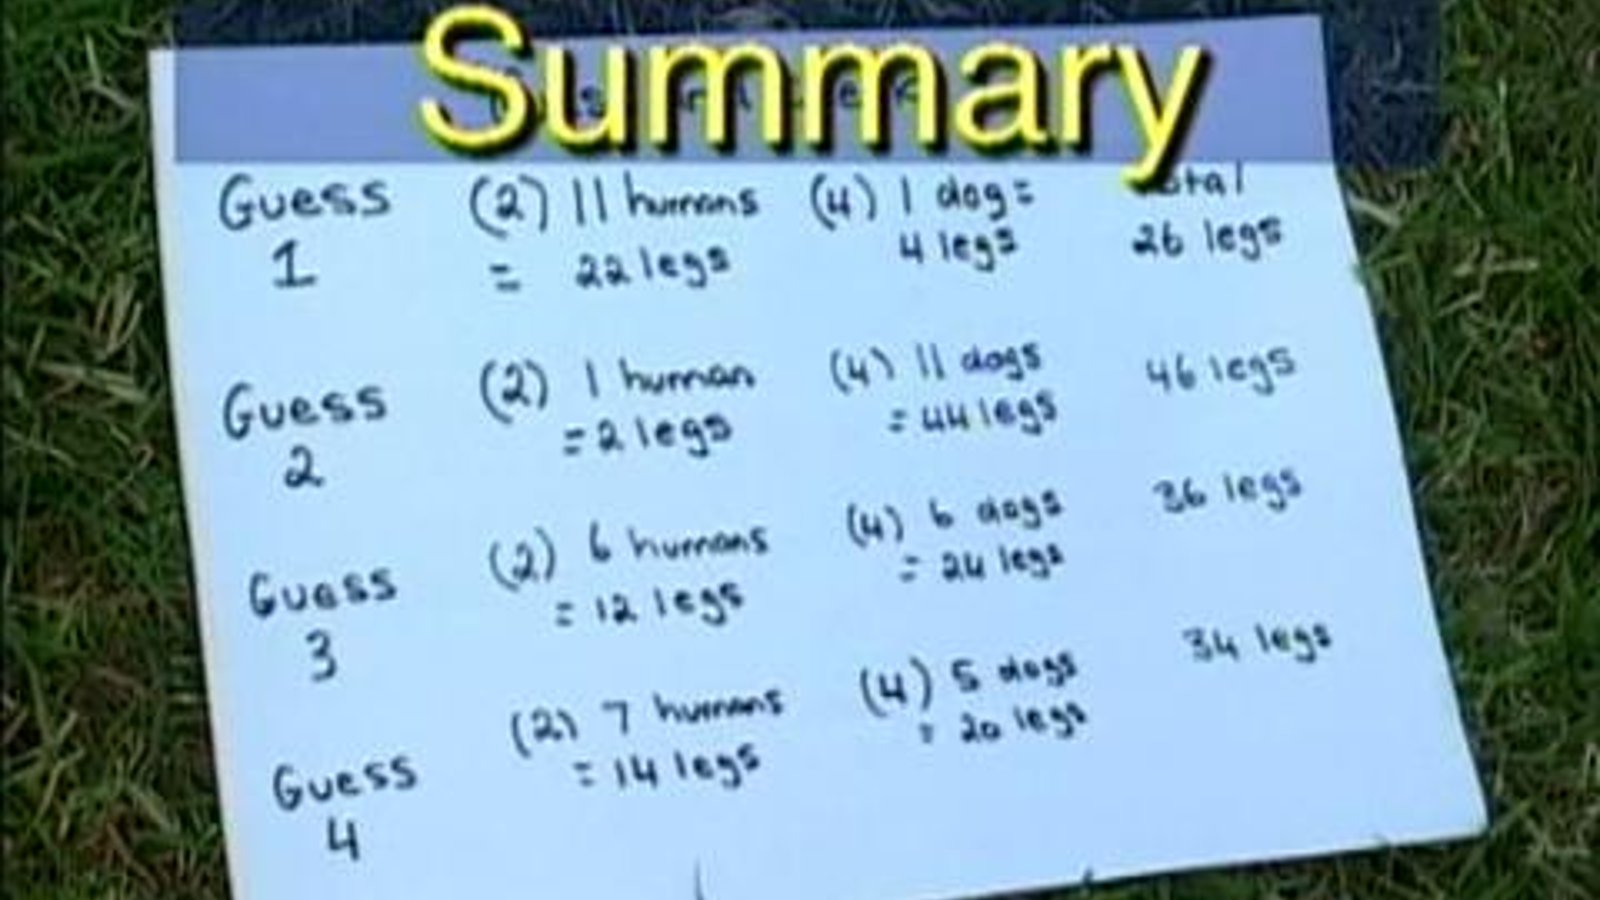 Summary
Guess (2) 11 humans (4) 1 dog =
1 = 22 legs 4 legs 26 legs
Guess (2) 1 human (4) 11 dogs 46 legs
2 = 2 legs = 44 legs
Guess (2) 6 humans (4) 6 dogs 36 legs
3 = 12 legs = 24 legs
Guess (2) 7 humans (4) 5 dogs 34 legs
4 = 14 legs = 20 legs